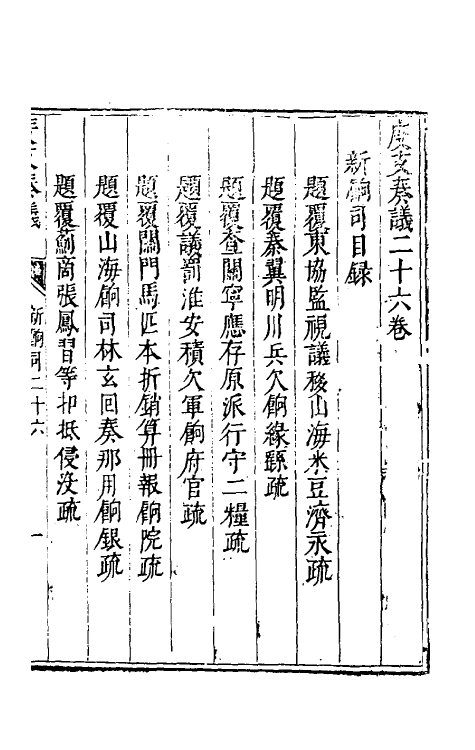 度支奏議二十六卷
新餉司目録
題覆東協監視議移山海米豆濟永疏
題覆秦翼明川兵欠餉緣繇疏
題覆查關寧應存原派行守二糧疏
題覆議罰淮安積欠軍餉府官疏
題覆關門馬匹本折銷算冊報餉院疏
題覆山海餉司林玄回奏那用餉銀疏
題覆薊商張鳳習等扣抵侵没疏
奏議 新餉司二十六 一